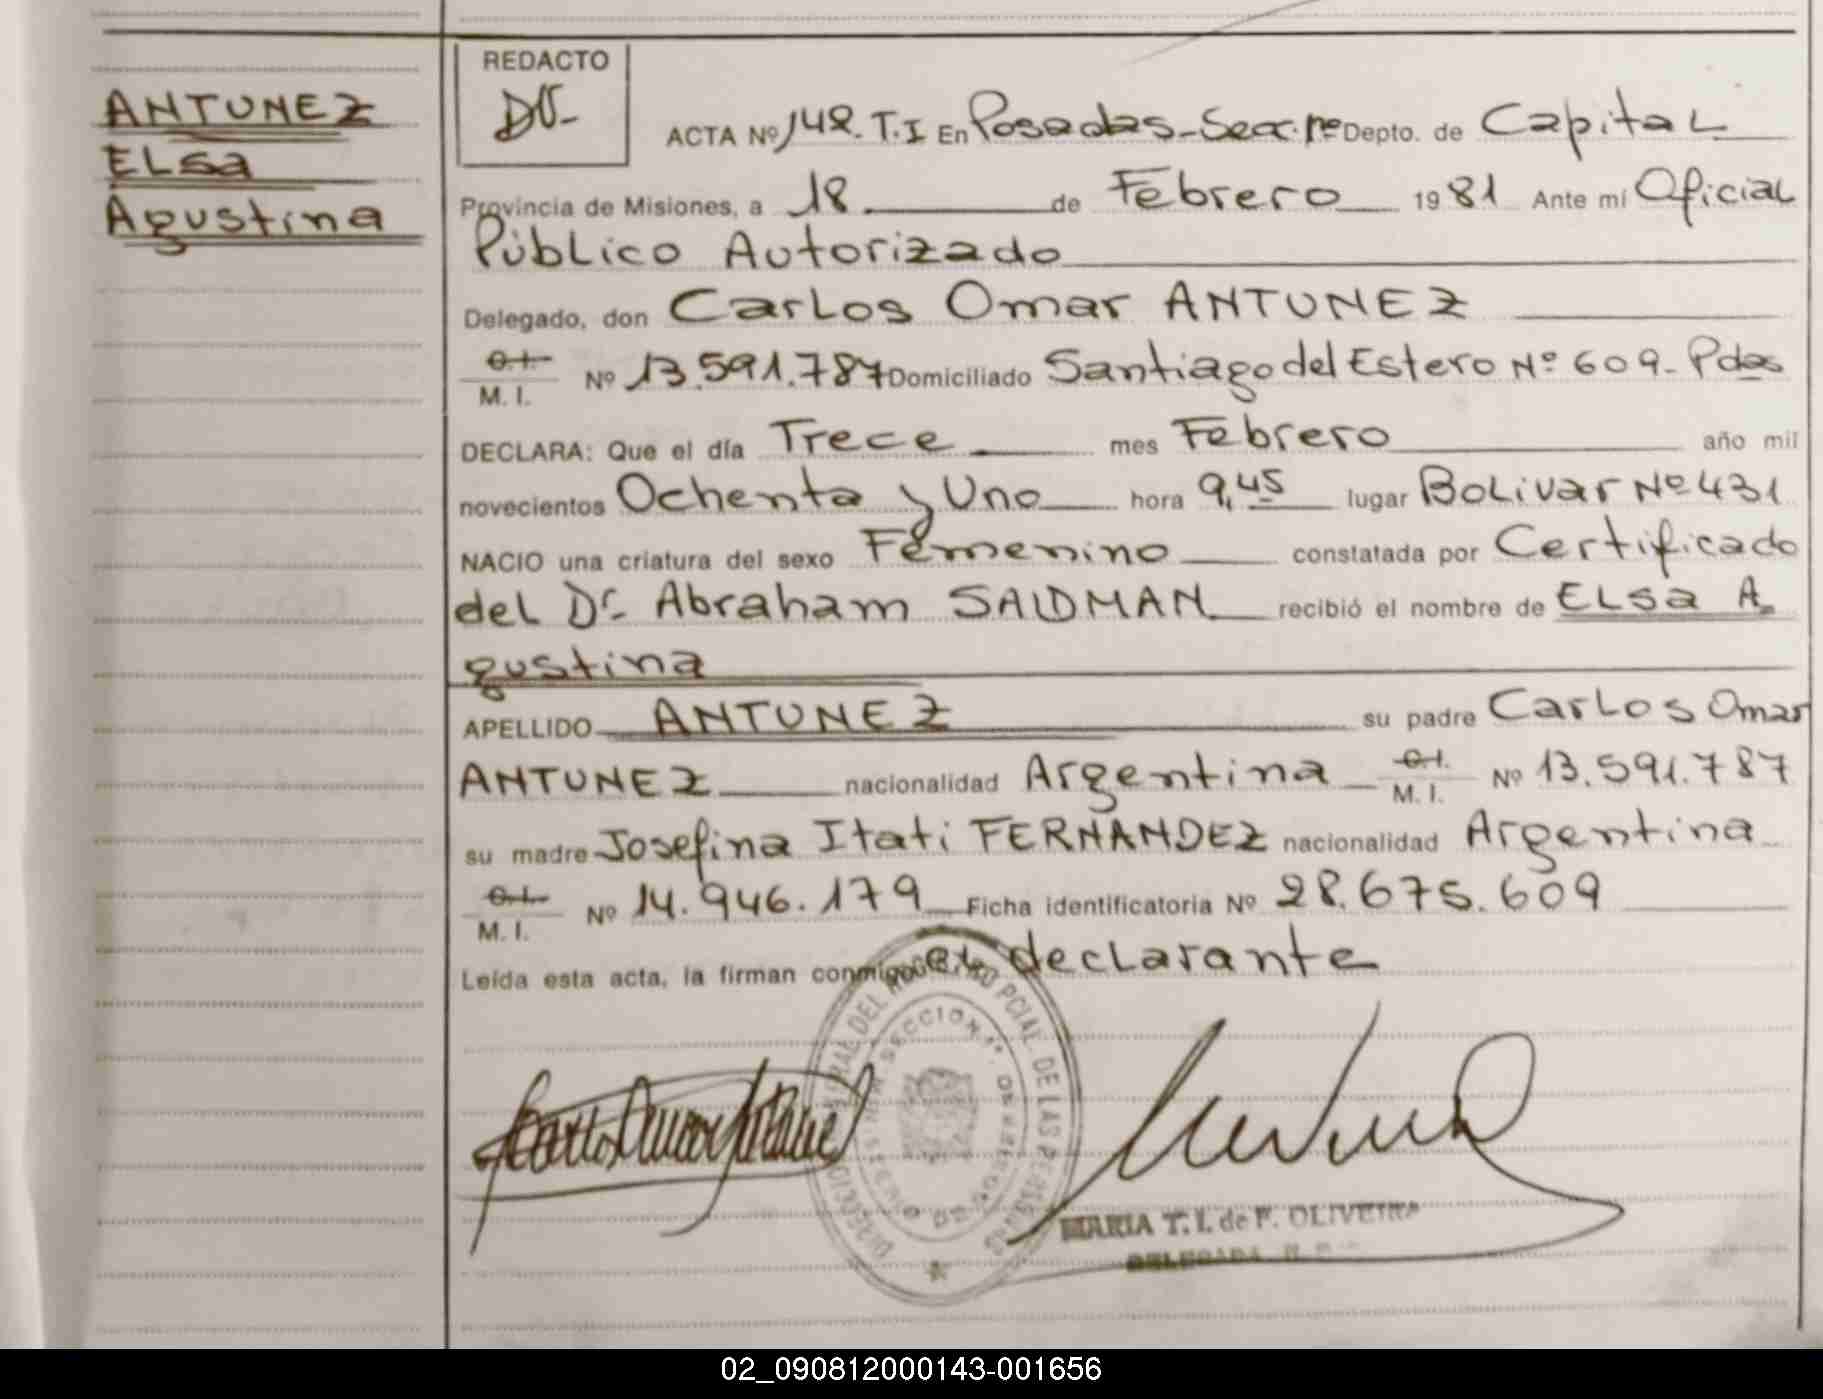 ANTUNEZ
ELsa
Agustina
REDACTO
ACTA Nº 142. T.I En Posadas-Secc. 1ª Depto. de Capital
Provincia de Misiones, a 18 de Febrero 1981 Ante mí Oficial
Público Autorizado
Delegado, don Carlos Omar ANTUNEZ
C.I.
M. I. Nº 13.591.787 Domiciliado Santiago del Estero Nº 609- Pdas
DECLARA: Que el día Trece mes Febrero año mil
novecientos Ochenta y Uno hora 9,45 lugar Bolivar Nº 431
NACIO una criatura del sexo Femenino constatada por Certificado
del Dr. Abraham SAIDMAN recibió el nombre de ELsa A
gustina
APELLIDO ANTUNEZ su padre Carlos Omar
ANTUNEZ nacionalidad Argentina C.I. M. I. Nº 13.591.787
su madre Josefina Itati FERNANDEZ nacionalidad Argentina
C.I.
M. I. Nº 14.946.179 Ficha identificatoria Nº 28.675.609
Leída esta acta, la firman conmigo el declarante
MARIA T. I. de F. OLIVEIRA
DELEGADA
02_090812000143-001656